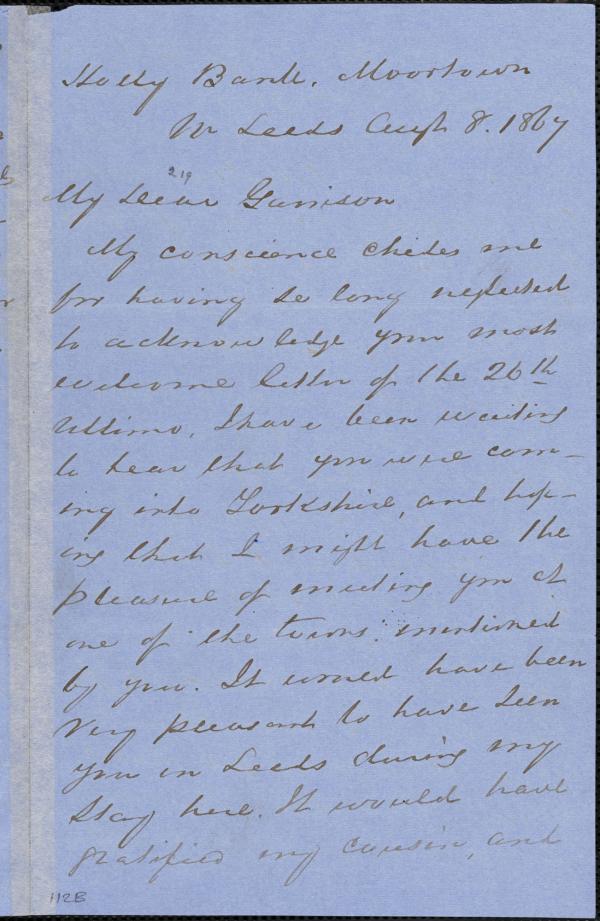 Holly Bank, Moortown
Nr Leeds Augt 8. 1867
219
My Dear Garrison
My conscience chides me
for having so long neglected
to acknowledge your most
welcome letter of the 26th
Ultimo. I have been waiting
to hear that you were com-
ing into Yorkshire, and hop-
ing that I might have the
pleasure of meeting you at
one of the towns mentioned
by you. It would have been
very pleasant to have seen
you in Leeds during my
stay here. It would have
gratified my cousin, and
112B